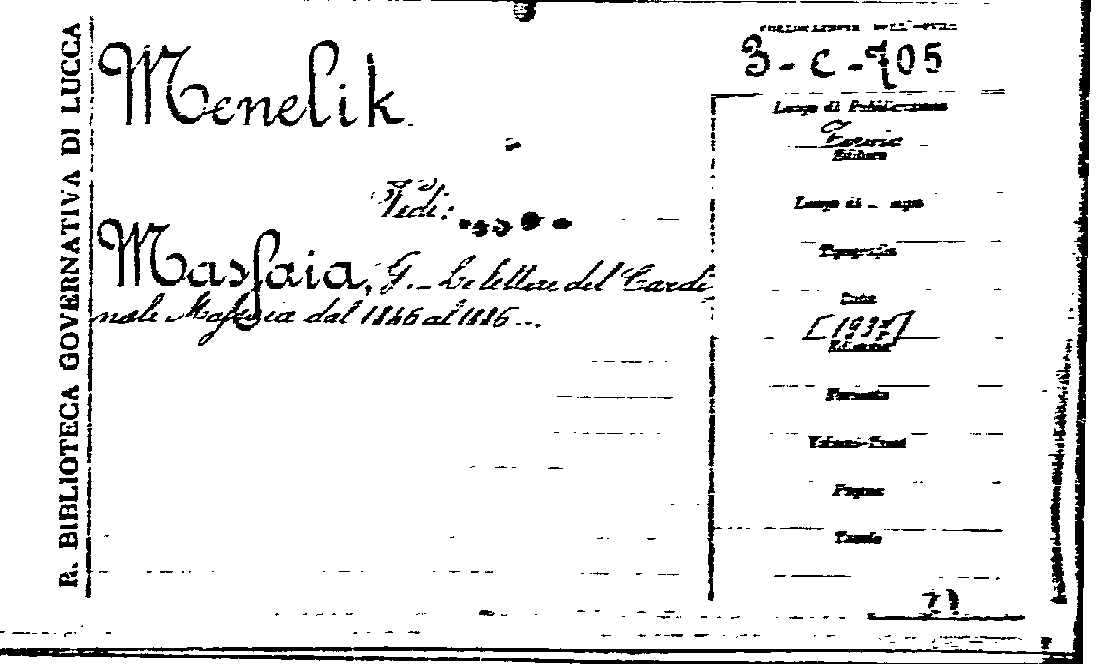 R. BIBLIOTECA GOVERNATIVA DI LUCCA
Menelik.
Vedi:
Massaia, G. - Le lettere del Cardi
nale Massaia dal 1846 al 1886...
3-C-705
Luogo di Pubblicazione
Torino
Editore
Luogo di
Tipografia
Data
[1937]
Edizione
Formato
Volumi-Parti
Pagine
Tavole